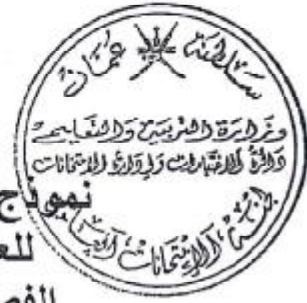 سلطنة عمان
وزارة التربية والتعليم
دائرة الاختبارات وإدارة الامتحانات
لجنة الامتحانات
نموذج
للع